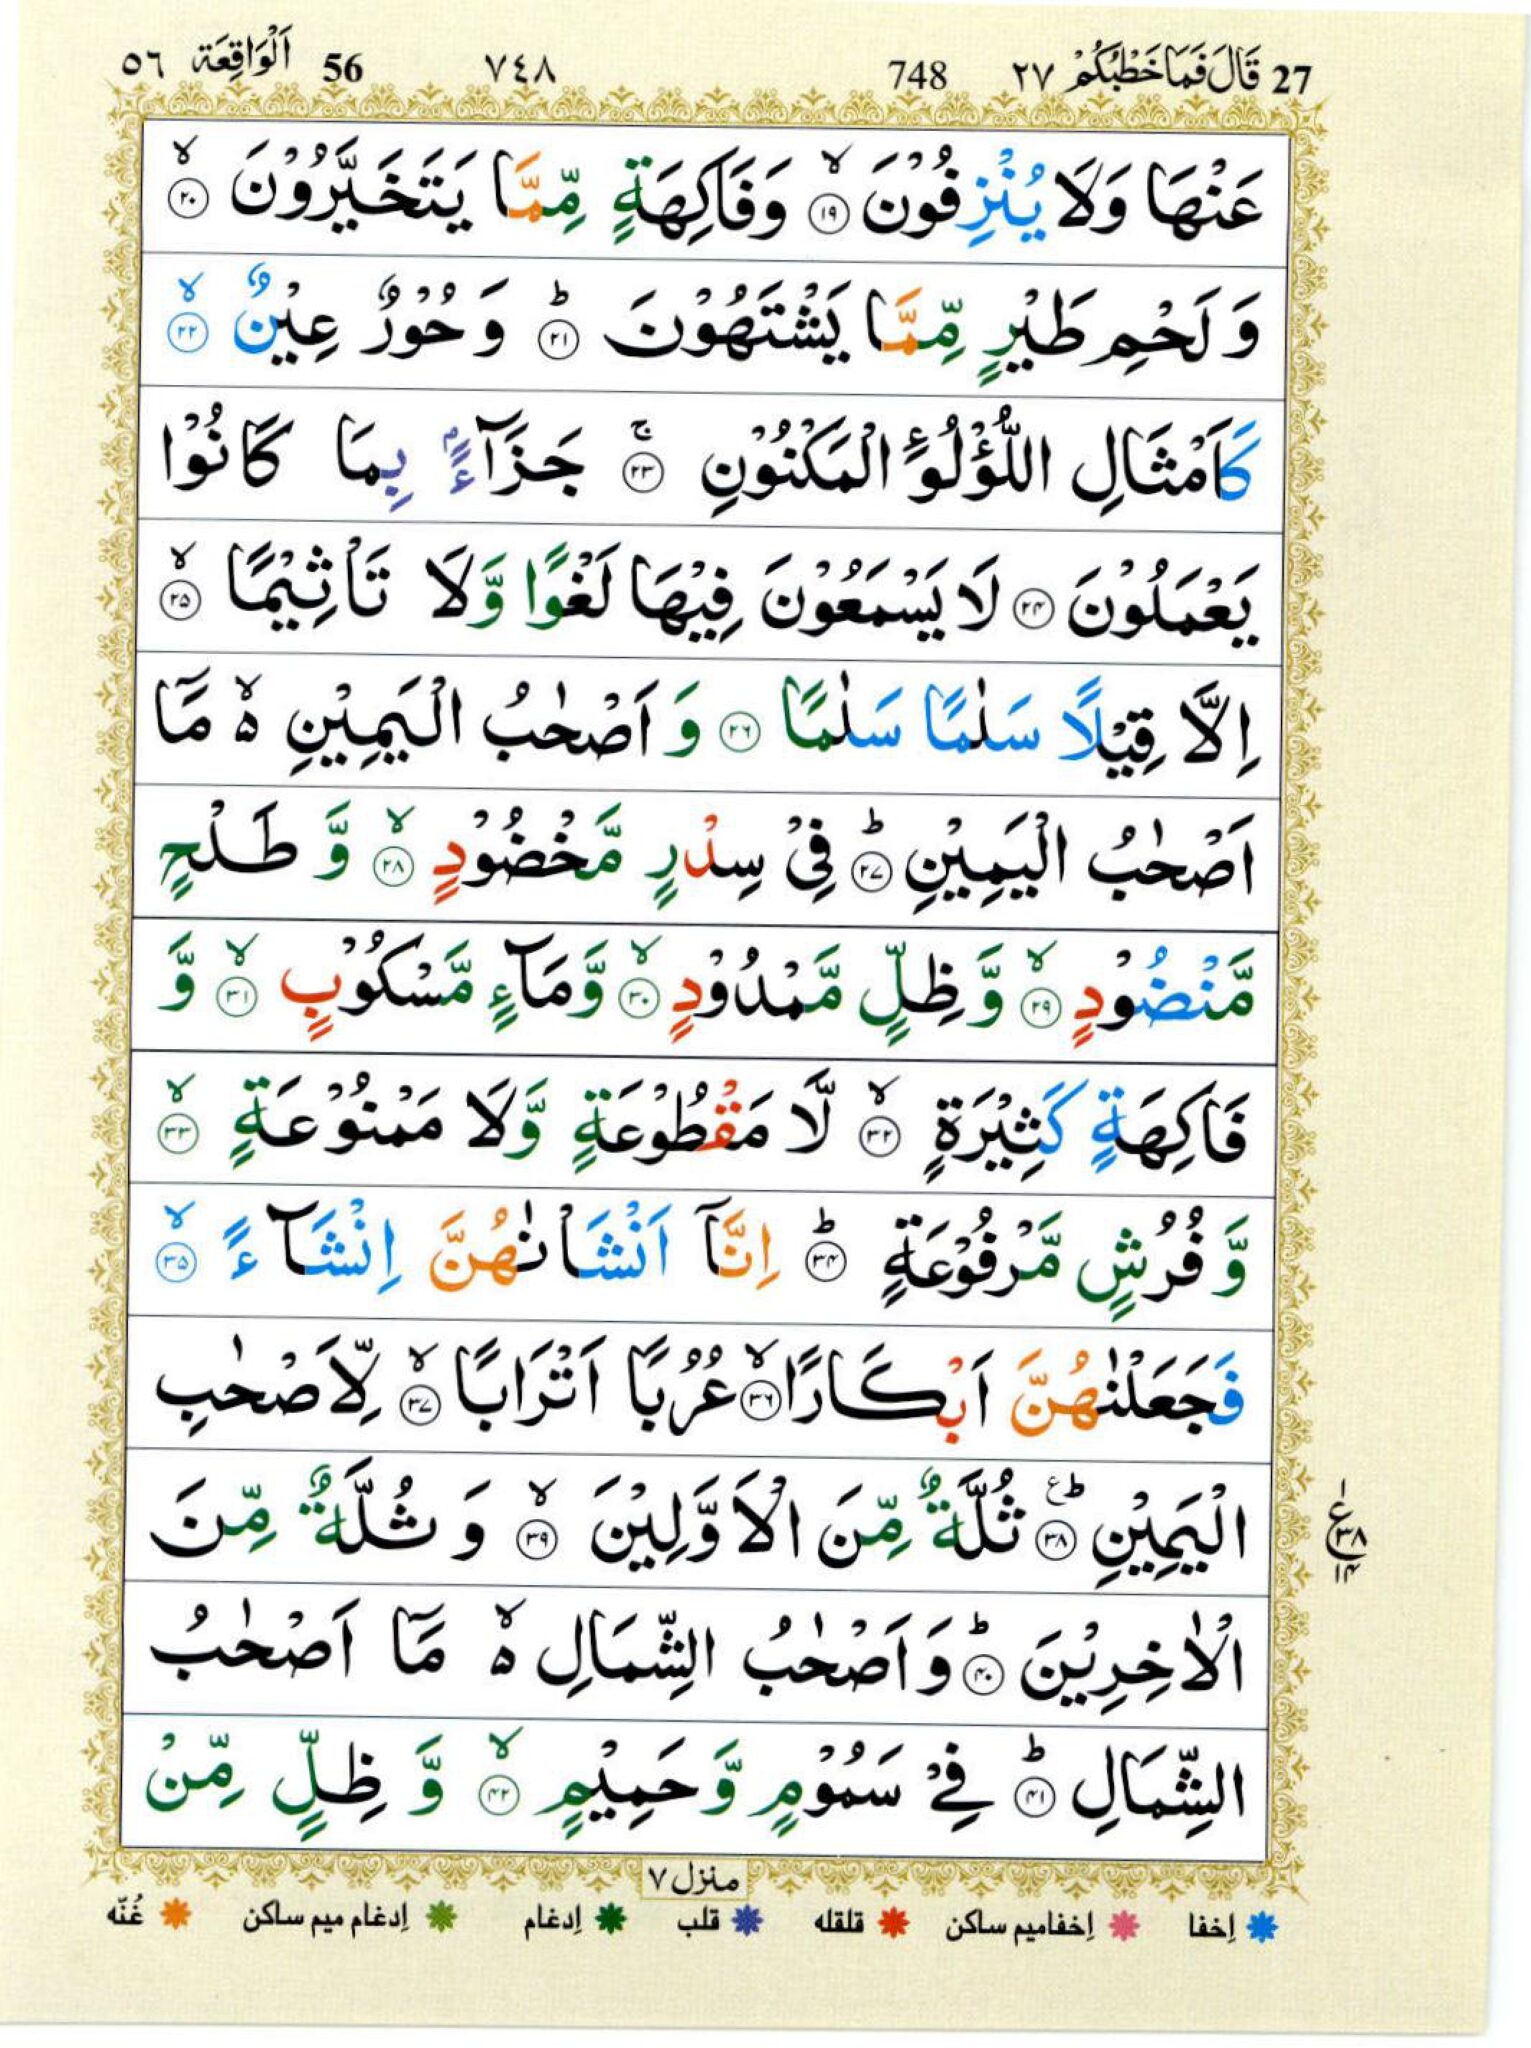 27 قَالَ فَمَا خَطْبُكُمْ ٢٧ 748 ٧٤٨ 56 اَلْوَاقِعَة ٥٦
عَنْهَا وَلَا يُنْزِفُوْنَ ۙ﴿۱۹﴾ وَفَاكِهَةٍ مِّمَّا يَتَخَيَّرُوْنَ ۙ﴿۲۰﴾
وَ لَحْمِ طَيْرٍ مِّمَّا يَشْتَهُوْنَ ؕ﴿۲۱﴾ وَ حُوْرٌ عِيْنٌ ۙ﴿۲۲﴾
كَاَمْثَالِ اللُّؤْلُوٴِ الْمَكْنُوْنِ ۚ﴿۲۳﴾ جَزَآءًۢ بِمَا كَانُوْا
يَعْمَلُوْنَ ﴿۲۴﴾ لَا يَسْمَعُوْنَ فِيْهَا لَغْوًا وَّلَا تَاْثِيْمًا ۙ﴿۲۵﴾
اِلَّا قِيْلًا سَلٰمًا سَلٰمًا ﴿۲۶﴾ وَ اَصْحٰبُ الْيَمِيْنِ ۬ۙ مَاۤ
اَصْحٰبُ الْيَمِيْنِ ؕ﴿۲۷﴾ فِىْ سِدْرٍ مَّخْضُوْدٍ ۙ﴿۲۸﴾ وَّ طَلْحٍ
مَّنْضُوْدٍ ۙ﴿۲۹﴾ وَّ ظِلٍّ مَّمْدُوْدٍ ۙ﴿۳۰﴾ وَّ مَآءٍ مَّسْكُوْبٍ ۙ﴿۳۱﴾ وَّ
فَاكِهَةٍ كَثِيْرَةٍ ۙ﴿۳۲﴾ لَّا مَقْطُوْعَةٍ وَّلَا مَمْنُوْعَةٍ ۙ﴿۳۳﴾
وَّ فُرُشٍ مَّرْفُوْعَةٍ ؕ﴿۳۴﴾ اِنَّاۤ اَنْشَاْنٰهُنَّ اِنْشَآءً ۙ﴿۳۵﴾
فَجَعَلْنٰهُنَّ اَبْكَارًا ۙ﴿۳۶﴾ عُرُبًا اَتْرَابًا ۙ﴿۳۷﴾ لِّاَصْحٰبِ
الْيَمِيْنِ ؕ﴿۳۸﴾ ثُلَّةٌ مِّنَ الْاَوَّلِيْنَ ۙ﴿۳۹﴾ وَ ثُلَّةٌ مِّنَ
الْاٰخِرِيْنَ ؕ﴿۴۰﴾ وَ اَصْحٰبُ الشِّمَالِ ۬ۙ مَاۤ اَصْحٰبُ
الشِّمَالِ ؕ﴿۴۱﴾ فِىْ سَمُوْمٍ وَّ حَمِيْمٍ ۙ﴿۴۲﴾ وَّ ظِلٍّ مِّنْ
۱ ع ۳۸ ۱۴
منزل ۷
اِخفا اِخفامیم ساکن قلقله قلب اِدغام اِدغام میم ساکن غُنّه